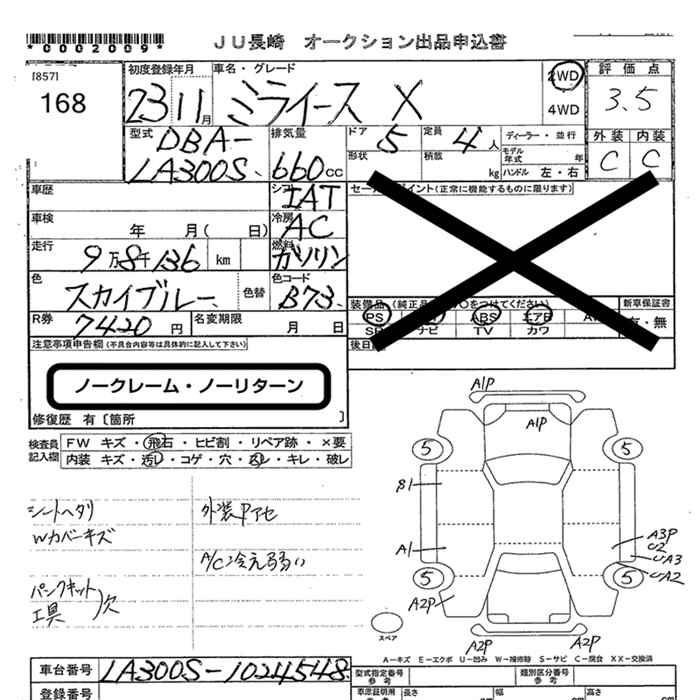 *0002009*
JU長崎 オークション出品申込書
[857]
168
初度登録年月
23年 11月
車名・グレード
ミライース X
2WD
4WD
評価点
3.5
外装 内装
C C
型式
DBA-
LA300S
排気量
660cc
ドア
5
形状
定員
4人
積載
kg
ディーラー・並行
モデル年式 年
ハンドル 左・右
車歴
シフト
IAT
車検
年 月( 日)
冷房
AC
走行
9万8千136 km
燃料
ガソリン
色
スカイブルー
色替
色コード
B73
R券
7420円
名変期限
月 日
セールスポイント(正常に機能するものに限ります)
装備品
PS
ナビ
ABS
TV
エアB
カワ
新車保証書
有・無
注意事項申告欄(不具合内容等は具体的に記入して下さい)
ノークレーム・ノーリターン
修復歴 有〔箇所 〕
検査員記入欄
FW キズ・飛石・ヒビ割・リペア跡・×要
内装 キズ・汚れ・コゲ・穴・・キレ・破レ
シートヘタリ
Wカバーキズ
パンクキット
工具
欠
外装中アセ
A/C冷え弱い
A1P
A1P
5
5
B1
A1
A3P
U2
UA3
UA2
5
5
A2P
A2P
A2P
スペア
A-キズ E-エクボ U-凹み W-補修跡 S-サビ C-腐食 XX-交換済
車台番号
LA300S-1024548
登録番号
型式指定番号
参考
類別区分番号
参考
車庫証明用
長さ
幅
高さ